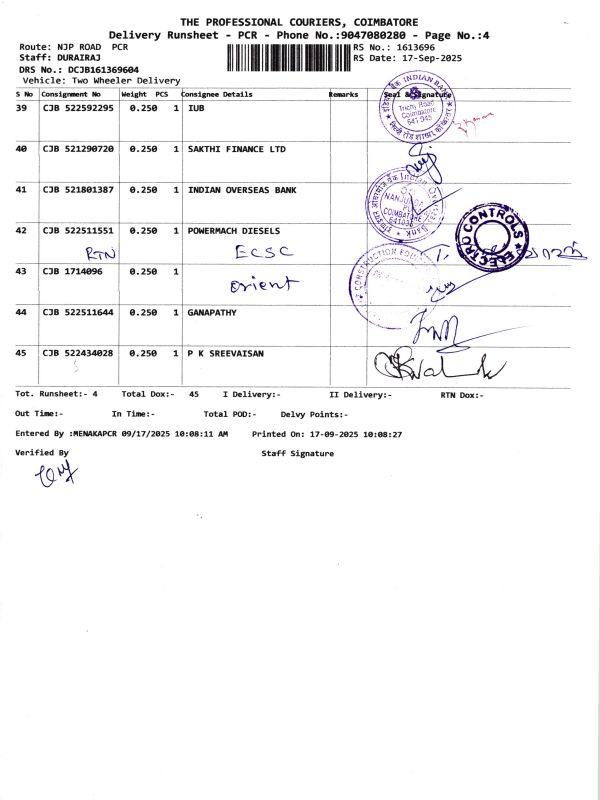 THE PROFESSIONAL COURIERS, COIMBATORE
Delivery Runsheet - PCR - Phone No.:9047080280 - Page No.:4
Route: NJP ROAD PCR
RS No.: 1613696
Staff: DURAIRAJ
RS Date: 17-Sep-2025
DRS No.: DCJB161369604
Vehicle: Two Wheeler Delivery
S No Consignment No Weight PCS Consignee Details Remarks Seal & Signature
39 CJB 522592295 0.250 1 IUB
INDIAN BANK
Trichy Road
Coimbatore
641 045
40 CJB 521290720 0.250 1 SAKTHI FINANCE LTD
41 CJB 521801387 0.250 1 INDIAN OVERSEAS BANK
Bank
42 CJB 522511551 0.250 1 POWERMACH DIESELS
RTN ECSC
ELECTRO CONTROLS
43 CJB 1714096 0.250 1
orient
CONSTRUCTION
44 CJB 522511644 0.250 1 GANAPATHY
45 CJB 522434028 0.250 1 P K SREEVAISAN
Tot. Runsheet:- 4 Total Dox:- 45 I Delivery:- II Delivery:- RTN Dox:-
Out Time:- In Time:- Total POD:- Delvy Points:-
Entered By :MENAKAPCR 09/17/2025 10:08:11 AM Printed On: 17-09-2025 10:08:27
Verified By Staff Signature